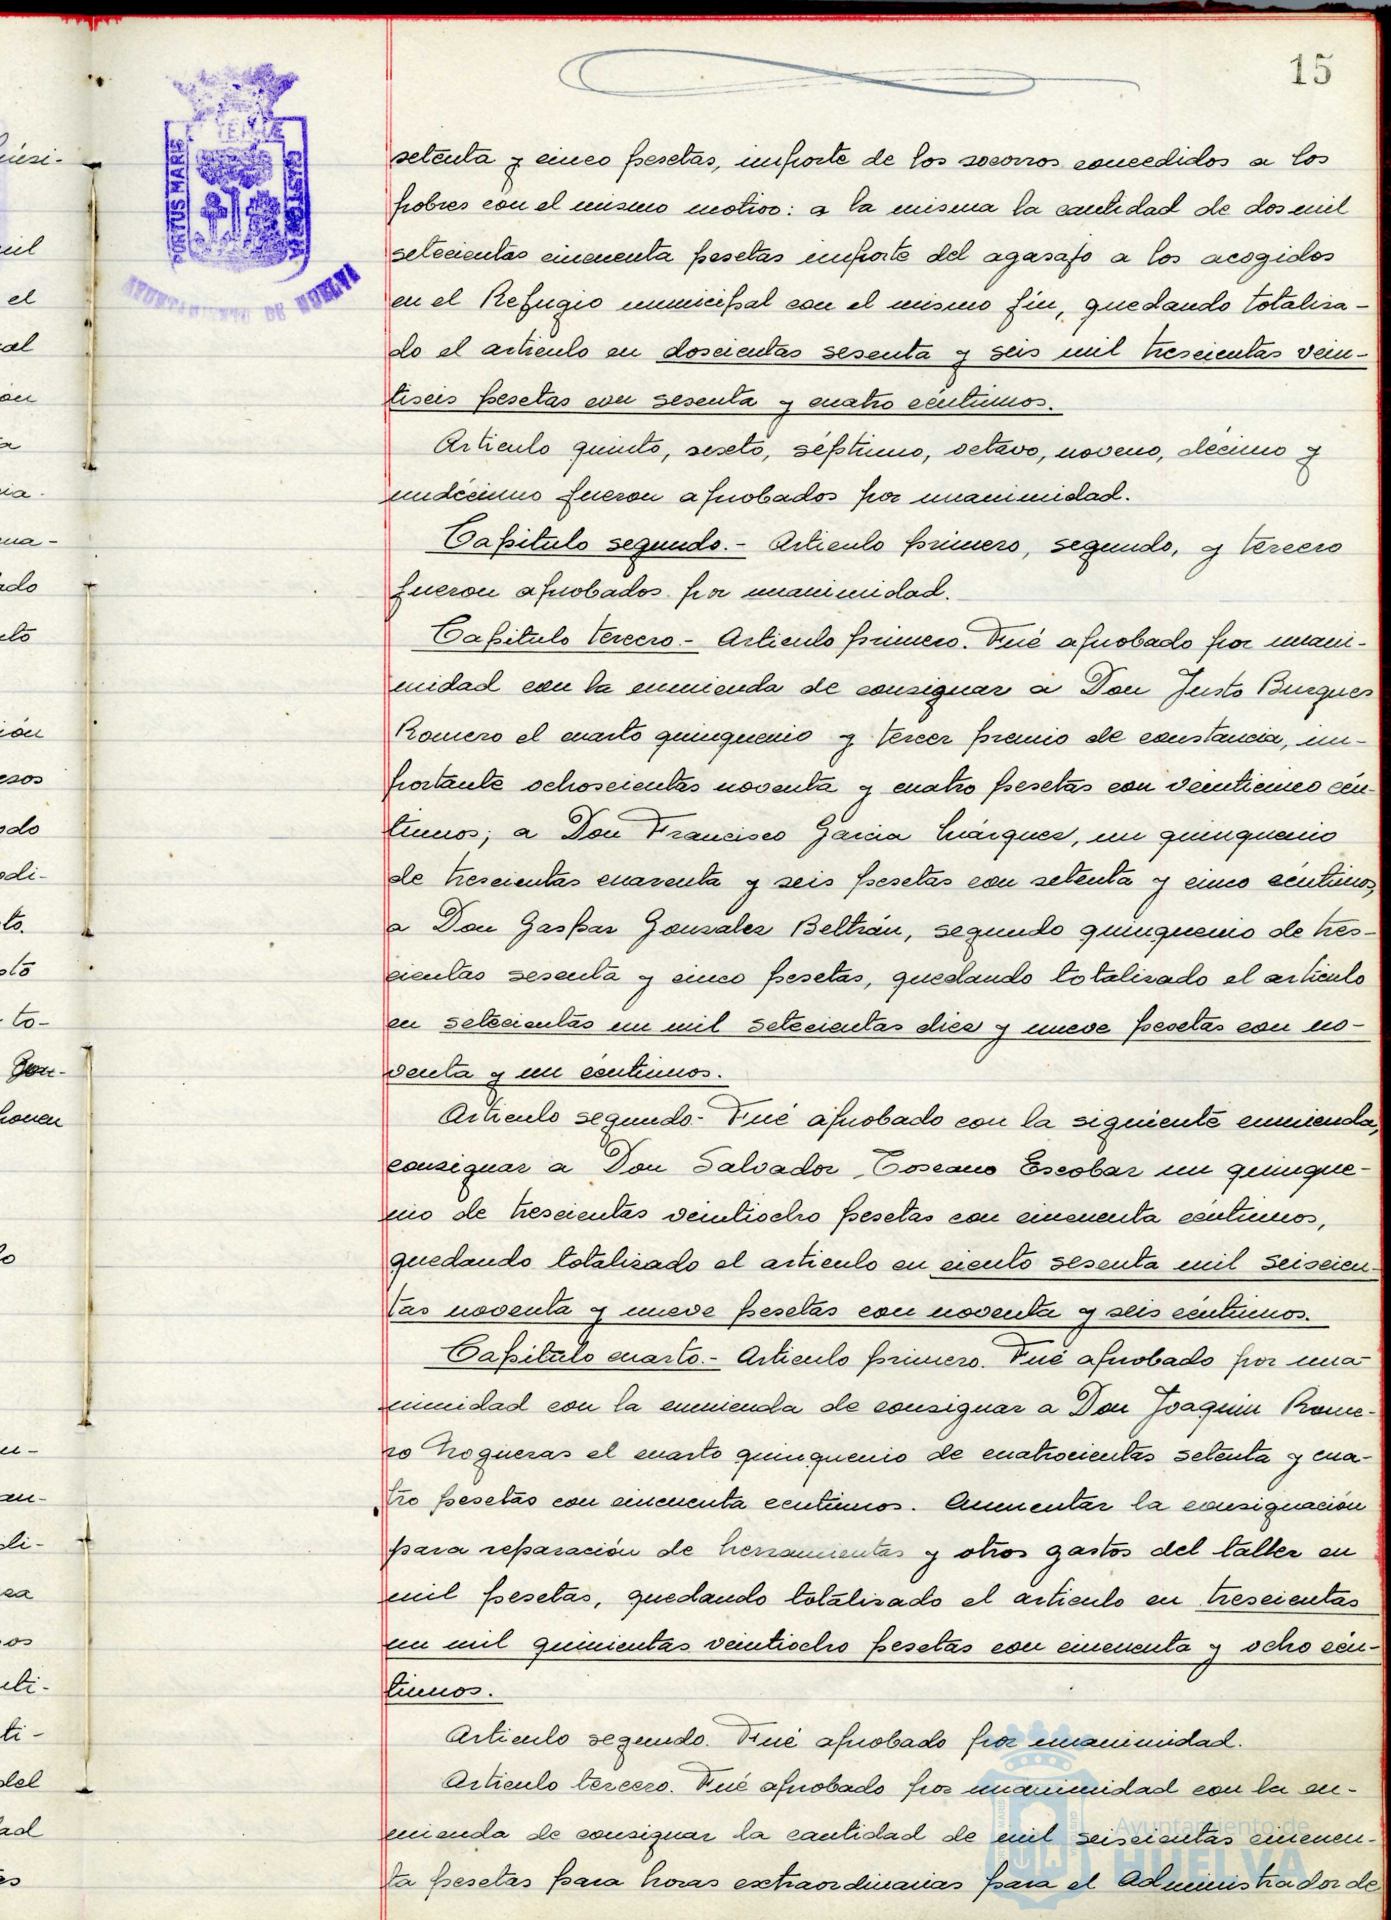 15
PORTUS MARIS
CUSTODIA
AYUNTAMIENTO DE HUELVA
setenta y cinco pesetas, importe de los socorros concedidos a los
pobres con el mismo motivo: a la misma la cantidad de dos mil
setecientas cincuenta pesetas importe del agasajo a los acogidos
en el Refugio municipal con el mismo fin, quedando totaliza-
do el articulo en doscientas sesenta y seis mil trescientas vein-
tiseis pesetas con sesenta y cuatro céntimos.
Articulo quinto, sexto, séptimo, octavo, noveno, décimo y
undécimo fueron aprobados por unanimidad.
Capitulo segundo.- Articulo primero, segundo, y tercero
fueron aprobados por unanimidad.
Capitulo tercero.- Articulo primero. Fué aprobado por unani-
midad con la enmienda de consignar a Don Justo Burgues
Romero el cuarto quinquenio y tercer premio de constancia, im-
portante ochoscientas noventa y cuatro pesetas con veinticinco cén-
timos; a Don Francisco Garcia Márquez, un quinquenio
de trescientas cuarenta y seis pesetas con setenta y cinco céntimos,
a Don Gaspar Gonzalez Beltrán, segundo quinquenio de tres-
cientas sesenta y cinco pesetas, quedando totalizado el articulo
en setecientas un mil setecientas diez y nueve pesetas con no-
venta y un céntimos.
Articulo segundo.- Fué aprobado con la siguiente enmienda,
consignar a Don Salvador Toscano Escobar un quinque-
nio de trescientas veintiocho pesetas con cincuenta céntimos,
quedando totalizado el articulo en ciento sesenta mil seiscien-
tas noventa y nueve pesetas con noventa y seis céntimos.
Capitulo cuarto.- Articulo primero. Fué aprobado por una-
nimidad con la enmienda de consignar a Don Joaquin Rome-
ro Nogueras el cuarto quinquenio de cuatrocientas setenta y cua-
tro pesetas con cincuenta centimos. Aumentar la consignación
para reparación de herramientas y otros gastos del taller en
mil pesetas, quedando totalizado el articulo en trescientas
un mil quinientas veintiocho pesetas con cincuenta y ocho cén-
timos.
Articulo segundo. Fué aprobado por unanimidad.
Articulo tercero. Fué aprobado por unanimidad con la en-
mienda de consignar la cantidad de mil seiscientas cincuen-
ta pesetas para horas extraordinarias para el Administrador de
Ayuntamiento de
HUELVA